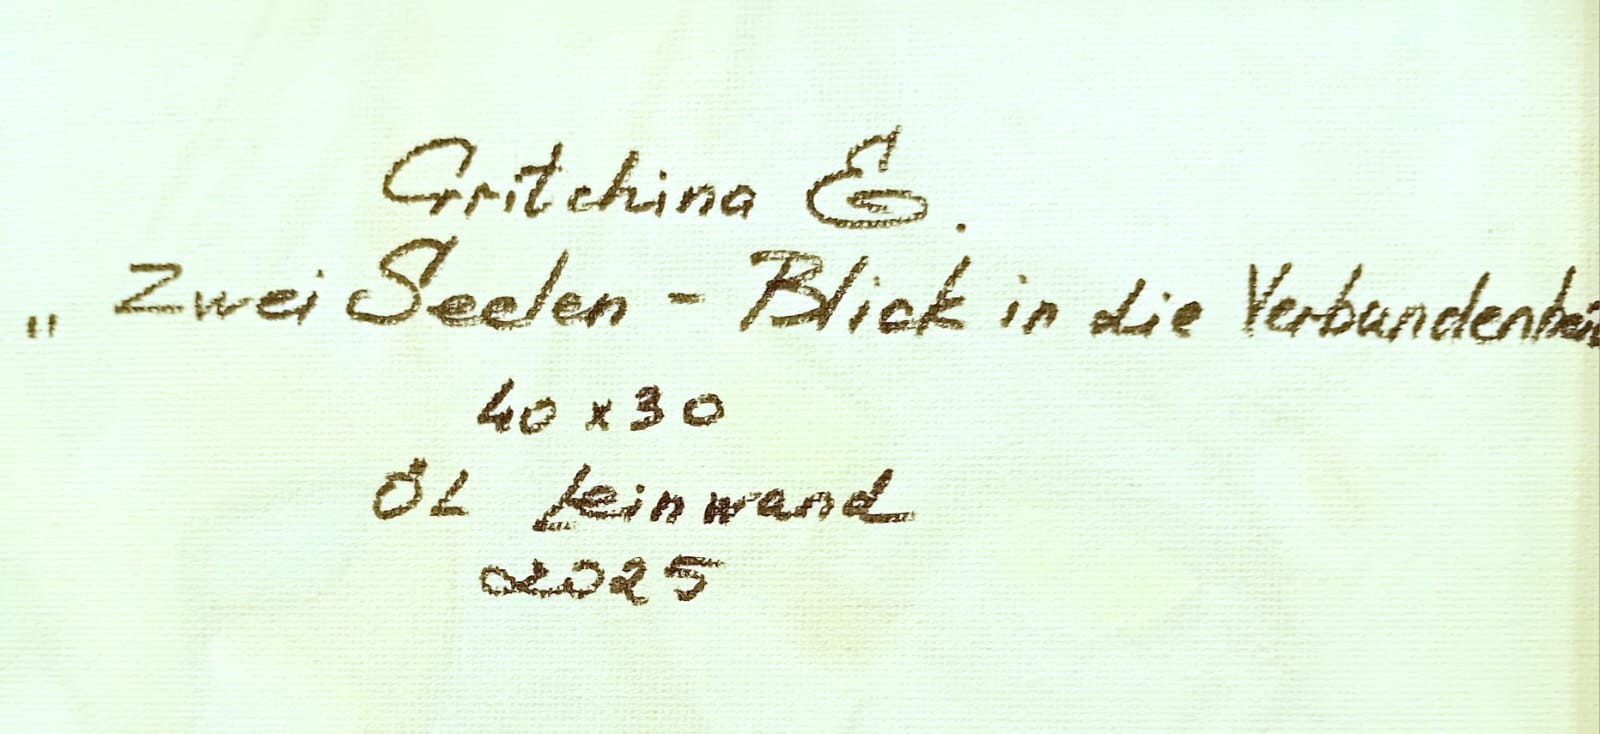 Gritchina E.
„Zwei Seelen - Blick in die Verbundenheit
40 x 30
ÖL Leinwand
2025